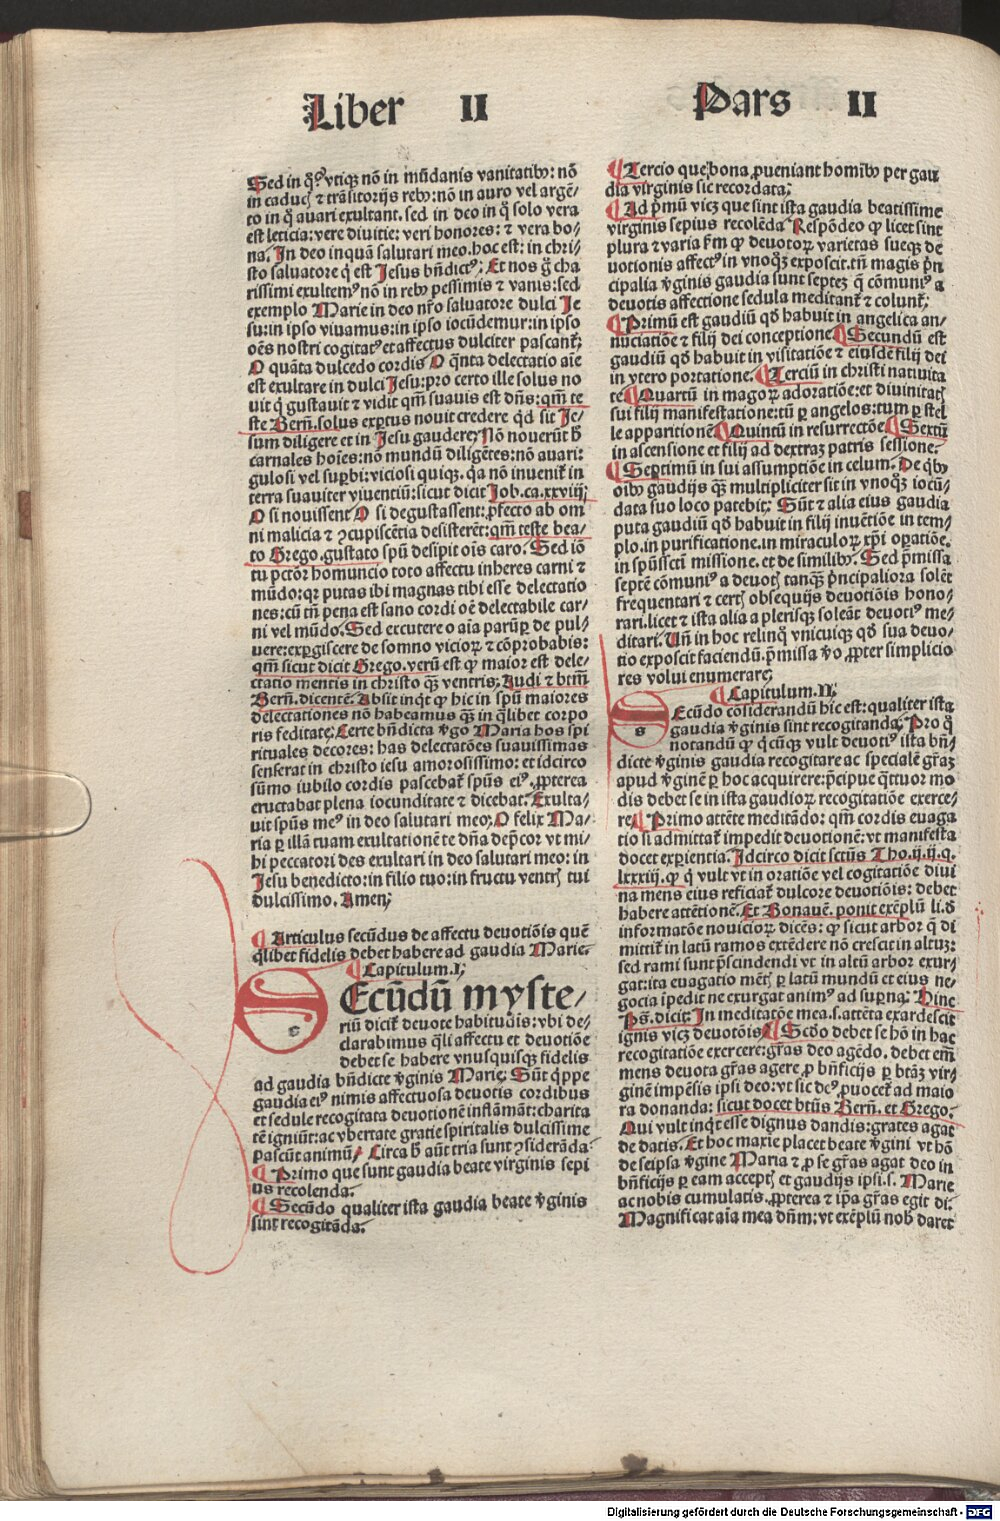 Liber II
Sed in q̄? vtiqꝫ nō in mūdanis vanitatibꝰ: nō
in caducꝭ ⁊ trāsitorijs rebꝰ: nō in auro vel argē⸗
to in q̄ auari exultant. sed in deo in q̊ solo vera
est leticia: vere diuitie: veri honores: ⁊ vera bo⸗
na. In deo inquā salutari meo. hoc est: in chri⸗
sto saluatore q̇ est Jesus bn̄dictꝰ; Et nos g̊ cha
rissimi exultemꝰ nō in rebꝰ pessimis ⁊ vanis: sed
exemplo Marie in deo nr̄o saluatore dulci Je
su: in ipso viuamus: in ipso iocūdemur: in ipso
oēs nostri cogitatꝰ et affectus dulciter pascant̄;
O quāta dulcedo cordis O q̄nta delectatio aīe
est exultare in dulci Jesu: pro certo ille solus no
uit q̇ gustauit ⁊ vidit qm̄ suauis est dn̄s: qm̄ te
ste Bern̄. solus exꝑtus nouit credere qd̄ sit Je⸗
sum diligere et in Jesu gaudere; Nō nouerūt h̄
carnales hoīes: nō mundū diligētes: nō auari:
gulosi vel suꝑbi: viciosi quiqꝫ. q̇a nō inuenit̄ in
terra suauiter viuentiū: sicut dicit Job. ca. xxviij;
O si nouissent O si degustassent: ꝓfecto ab om
ni malicia ⁊ ꝯcupiscētia desisterēt: qm̄ teste bea⸗
to Grego. gustato spū desipit oīs caro. Sed iō
tu pctōr homuncio toto affectu inheres carni ⁊
mūdo: qꝛ putas ibi magnas tibi esse delectatio
nes: cū tn̄ pena est sano cordi oē delectabile car⸗
ni vel mūdo. Sed excutere o aīa parūꝑ de pul⸗
uere: exꝑgiscere de somno vicioꝝ ⁊ cōprobabis:
qm̄ sicut dicit Grego. verū est ꝙ maior est dele⸗
ctatio mentis in christo qꝫ ventris; Audi ⁊ btm̄
Bern̄. dicentē. Absit inq̇t ꝙ hic in spū maiores
delectationes nō habeamus qꝫ in q̊libet corpo
ris feditate; Certe bn̄dicta v̇go Maria hos spi
rituales decores: has delectatōes suauissimas
senserat in christo iesu amorosissimo: et idcirco
sūmo iubilo cordis pascebat̄ spūs eiꝰ. ꝓpterea
eructabat plena iocunditate ⁊ dicebat. Exulta⸗
uit spūs meꝰ in deo salutari meo; O felix Ma⸗
ria ꝑ illā tuam exultationē te dn̄a dep̄cor vt mi⸗
hi peccatori des exultari in deo salutari meo: in
Jesu benedicto: in filio tuo: in fructu ventrꝭ tui
dulcissimo. Amen;
¶ Articulus secūdus de affectu deuotiōis quē
q̊libet fidelis debet habere ad gaudia Marie.
¶ Capitulum. I;
Ecūdū myste⸗
riū dicit̄ deuote habitudīs: vbi de⸗
clarabimus q̊li affectu et deuotiōe
debet se habere vnusquisqꝫ fidelis
ad gaudia bn̄dicte v̇ginis Marie; Sūt q̇ppe
gaudia eiꝰ nimis affectuosa deuotis cordibus
et sedule recogitata deuotionē inflāmāt: charita
tē igniūt: ac vbertate gratie spiritalis dulcissime
pascūt animū; Circa h̄ aūt tria sunt ꝯsiderāda
¶ Primo que sunt gaudia beate virginis sepi
us recolenda.
¶ Secūdo qualiter ista gaudia beate v̇ginis
sint recogitāda.
Pars II
¶ Tercio que bona ꝓueniant homībꝰ per gau
dia virginis sic recordata;
¶ Ad p̄mū vicꝫ que sint ista gaudia beatissime
virginis sepius recolēda Respōdeo ꝙ licet sint
plura ⁊ varia fm̄ ꝙ deuotoꝝ varietas sueqꝫ de
uotionis affectꝰ in vnoq̊ꝫ exposcit. tn̄ magis ṗn
cipalia v̇ginis gaudia sunt septeꝫ q̄ cōmuniꝰ a
deuotis affectione sedula meditant̄ ⁊ colunt̄;
¶ Primū est gaudiū qd̄ habuit in angelica an⸗
nūciatiōe ⁊ filij dei conceptione. ¶ Secundū est
gaudiū qd̄ habuit in visitatiōe ⁊ eiusdē filij dei
in vtero portatione. ¶ Terciū in christi natiuita
te ¶ Quartū in magoꝝ adoratiōe: et diuinitatꝭ
sui filij manifestatione: tū ꝑ angelos: tum ꝑ stel
le apparitionē ¶ Quintū in resurrectōe ¶ Sextū
in ascensione et filij ad dextraꝫ patris sessione.
¶ Septimū in sui assumptiōe in celum. De q̇bꝰ
oībꝰ gaudijs qꝫ multipliciter sit in vnoq̊ꝫ iocū⸗
data suo loco patebit; Sūt ⁊ alia eius gaudia
puta gaudiū qd̄ habuit in filij inuētiōe in tem⸗
plo. in purificatione. in miraculoꝝ xp̄i oꝑatiōe.
in spūsscti missione. et de similibꝰ. Sed p̄missa
septē cōmuniꝰ a deuotꝭ tanqꝫ ṗncipaliora solēt
frequentari ⁊ certꝭ obsequijs deuotiōis hono⸗
rari. licet ⁊ ista alia a plerisqꝫ soleāt deuotiꝰ me⸗
ditari. Un̄ in hoc relinq̊ vnicuiqꝫ qd̄ sua deuo⸗
tio exposcit faciendū. p̄missa v̊o ꝓpter simplicio
res volui enumerare;
¶ Capitulum. II;
Ecūdo cōsiderandū hic est: qualiter ista
gaudia v̇ginis sint recogitanda; Pro q̊
notandū ꝙ q̇cūqꝫ vult deuotiꝰ ista bn̄⸗
dicte v̇ginis gaudia recogitare ac specialē gr̄aꝫ
apud v̇ginē ꝑ hoc acquirere: ṗcipue q̄ttuor mo
dis debet se in ista gaudioꝝ recogitatiōe exerce⸗
re; ¶ Primo attēte meditādo: qm̄ cordis euaga
tio si admittat̄ impedit deuotionē: vt manifesta
docet exꝑientia. Idcirco dicit sctūs Tho. ij. ij. q.
lxxxiij. ꝙ q̇ vult vt in oratiōe vel cogitatiōe diui
na mens eius reficiat̄ dulcore deuotiōis: debet
habere attētionē. Et Bonauē. ponit exēplū li. d̄
informatōe nouicioꝝ dicēs: ꝙ sicut arbor q̄ di
mittit̄ in latū ramos extēdere nō crescit in altuꝫ:
sed rami sunt p̄scindendi vt in altū arbor exur⸗
gat: ita euagatio mētꝭ ꝑ latū mundū et eius ne⸗
gocia īpedit ne exurgat animꝰ ad suꝑna; Hinc
Ps̄. dicit; In meditatōe mea. s. attēta exardescit
ignis vicꝫ deuotōis; ¶ Scd̄o debet se hō in hac
recogitatiōe exercere: gr̄as deo agēdo. debet em̄
mens deuota gr̄as agere ꝓ bn̄ficijs ꝑ btāꝫ vir⸗
ginē impēsis ipsi deo: vt sic deꝰ ꝓuocet̄ ad maio
ra donanda: sicut docet btūs Bern̄. et Grego.
Qui vult inq̇t esse dignus dandis: grates agat
de datis. Et hoc maxie placet beate v̇gini vt hō
de seipsa v̇gine Maria ⁊ ꝓ se gr̄as agat deo in
bn̄ficijs ꝑ eam acceptꝭ et gaudijs ipsi. s. Marie
ac nobis cumulatis. ꝓpterea ⁊ ip̄a gr̄as egit di.
Magnificat aīa mea dn̄m: vt exēplū nob̄ daret
Digitalisierung gefördert durch die Deutsche Forschungsgemeinschaft - DFG